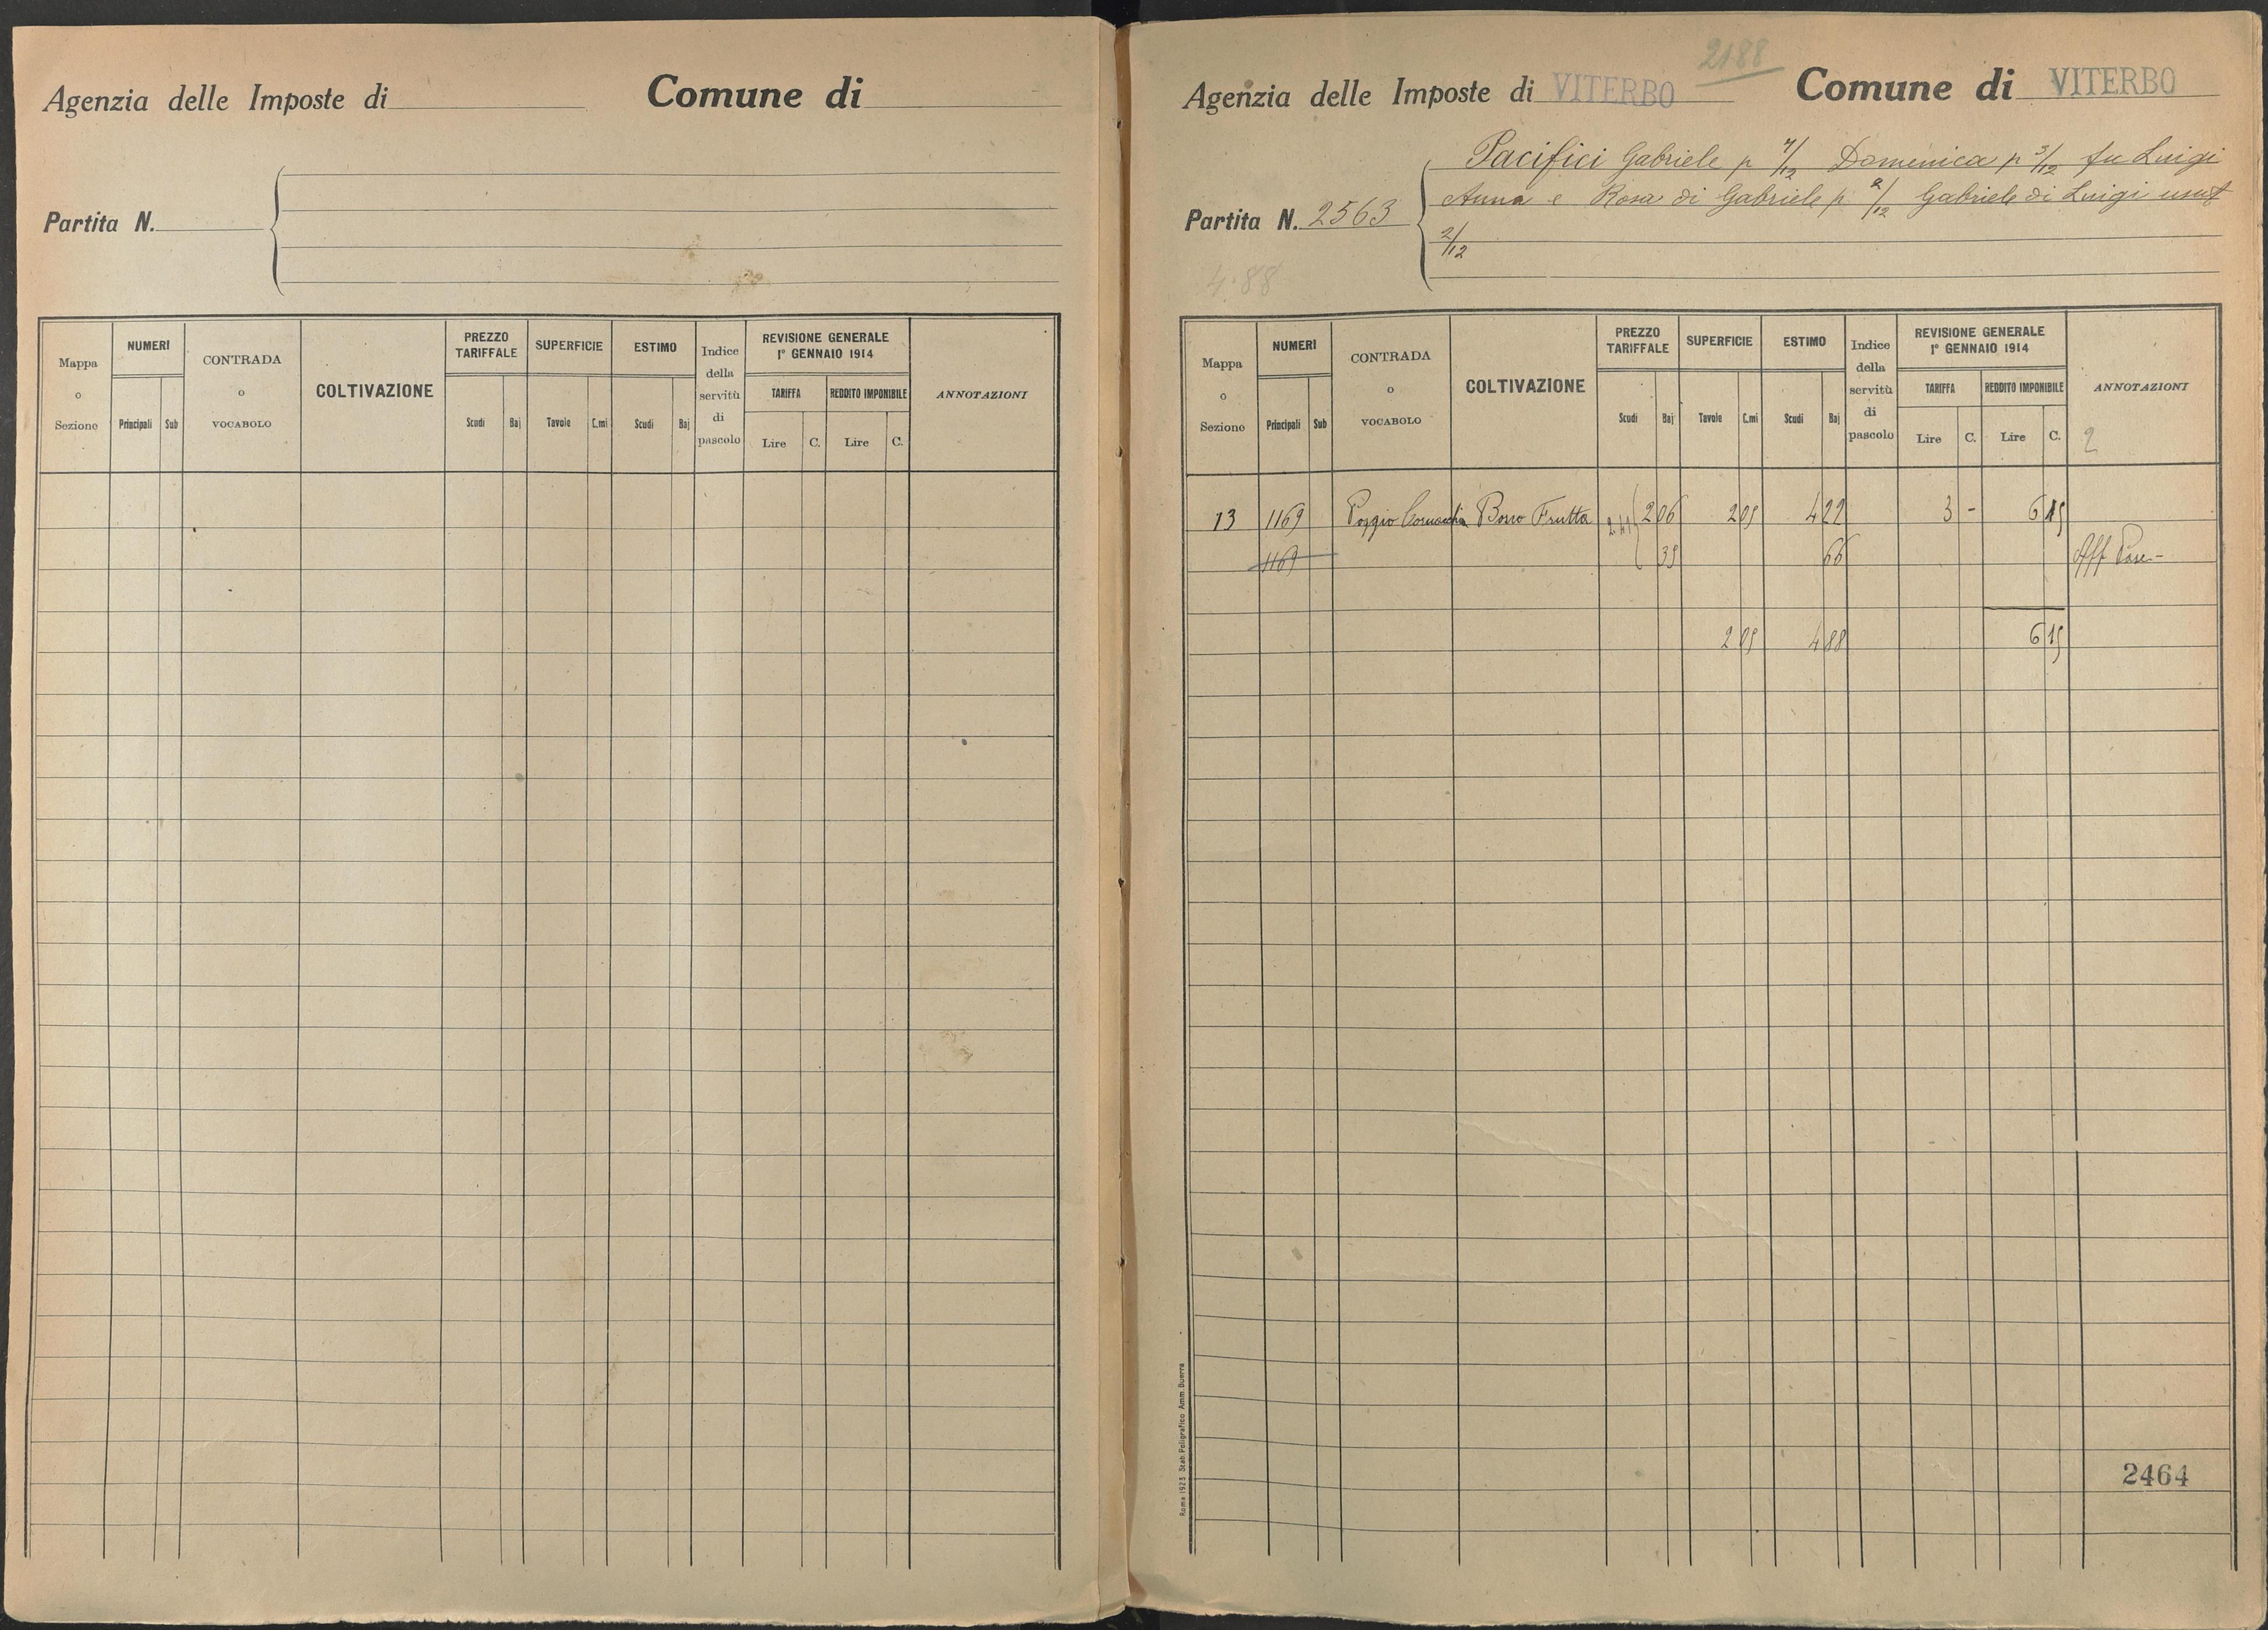 Agenzia delle Imposte di
Comune di
Partita N.
Mappa o Sezione
NUMERI
Principali Sub
CONTRADA o VOCABOLO
COLTIVAZIONE
PREZZO TARIFFALE
Scudi Baj
SUPERFICIE
Tavole C.mi
ESTIMO
Scudi Baj
Indice della servitù di pascolo
REVISIONE GENERALE 1° GENNAIO 1914
TARIFFA
Lire C.
REDDITO IMPONIBILE
Lire C.
ANNOTAZIONI
2188
Agenzia delle Imposte di VITERBO
Comune di VITERBO
Pacifici Gabriele p 7/12 Domenica p 3/12 fu Luigi
Partita N. 2563
Anna e Rosa di Gabriele p 2/12 Gabriele di Luigi usuf
2/12
4.88
Mappa o Sezione
NUMERI
Principali Sub
CONTRADA o VOCABOLO
COLTIVAZIONE
PREZZO TARIFFALE
Scudi Baj
SUPERFICIE
Tavole C.mi
ESTIMO
Scudi Baj
Indice della servitù di pascolo
REVISIONE GENERALE 1° GENNAIO 1914
TARIFFA
Lire C.
REDDITO IMPONIBILE
Lire C.
ANNOTAZIONI
2
13 1169 Poggio Cornacchia Frutta 2 06 2 05 4 22 3 - 6 15
1169 35 66 Aff
2 05 4 88 6 15
2464
Roma 1923 Stab. Poligrafico Amm. Guerra